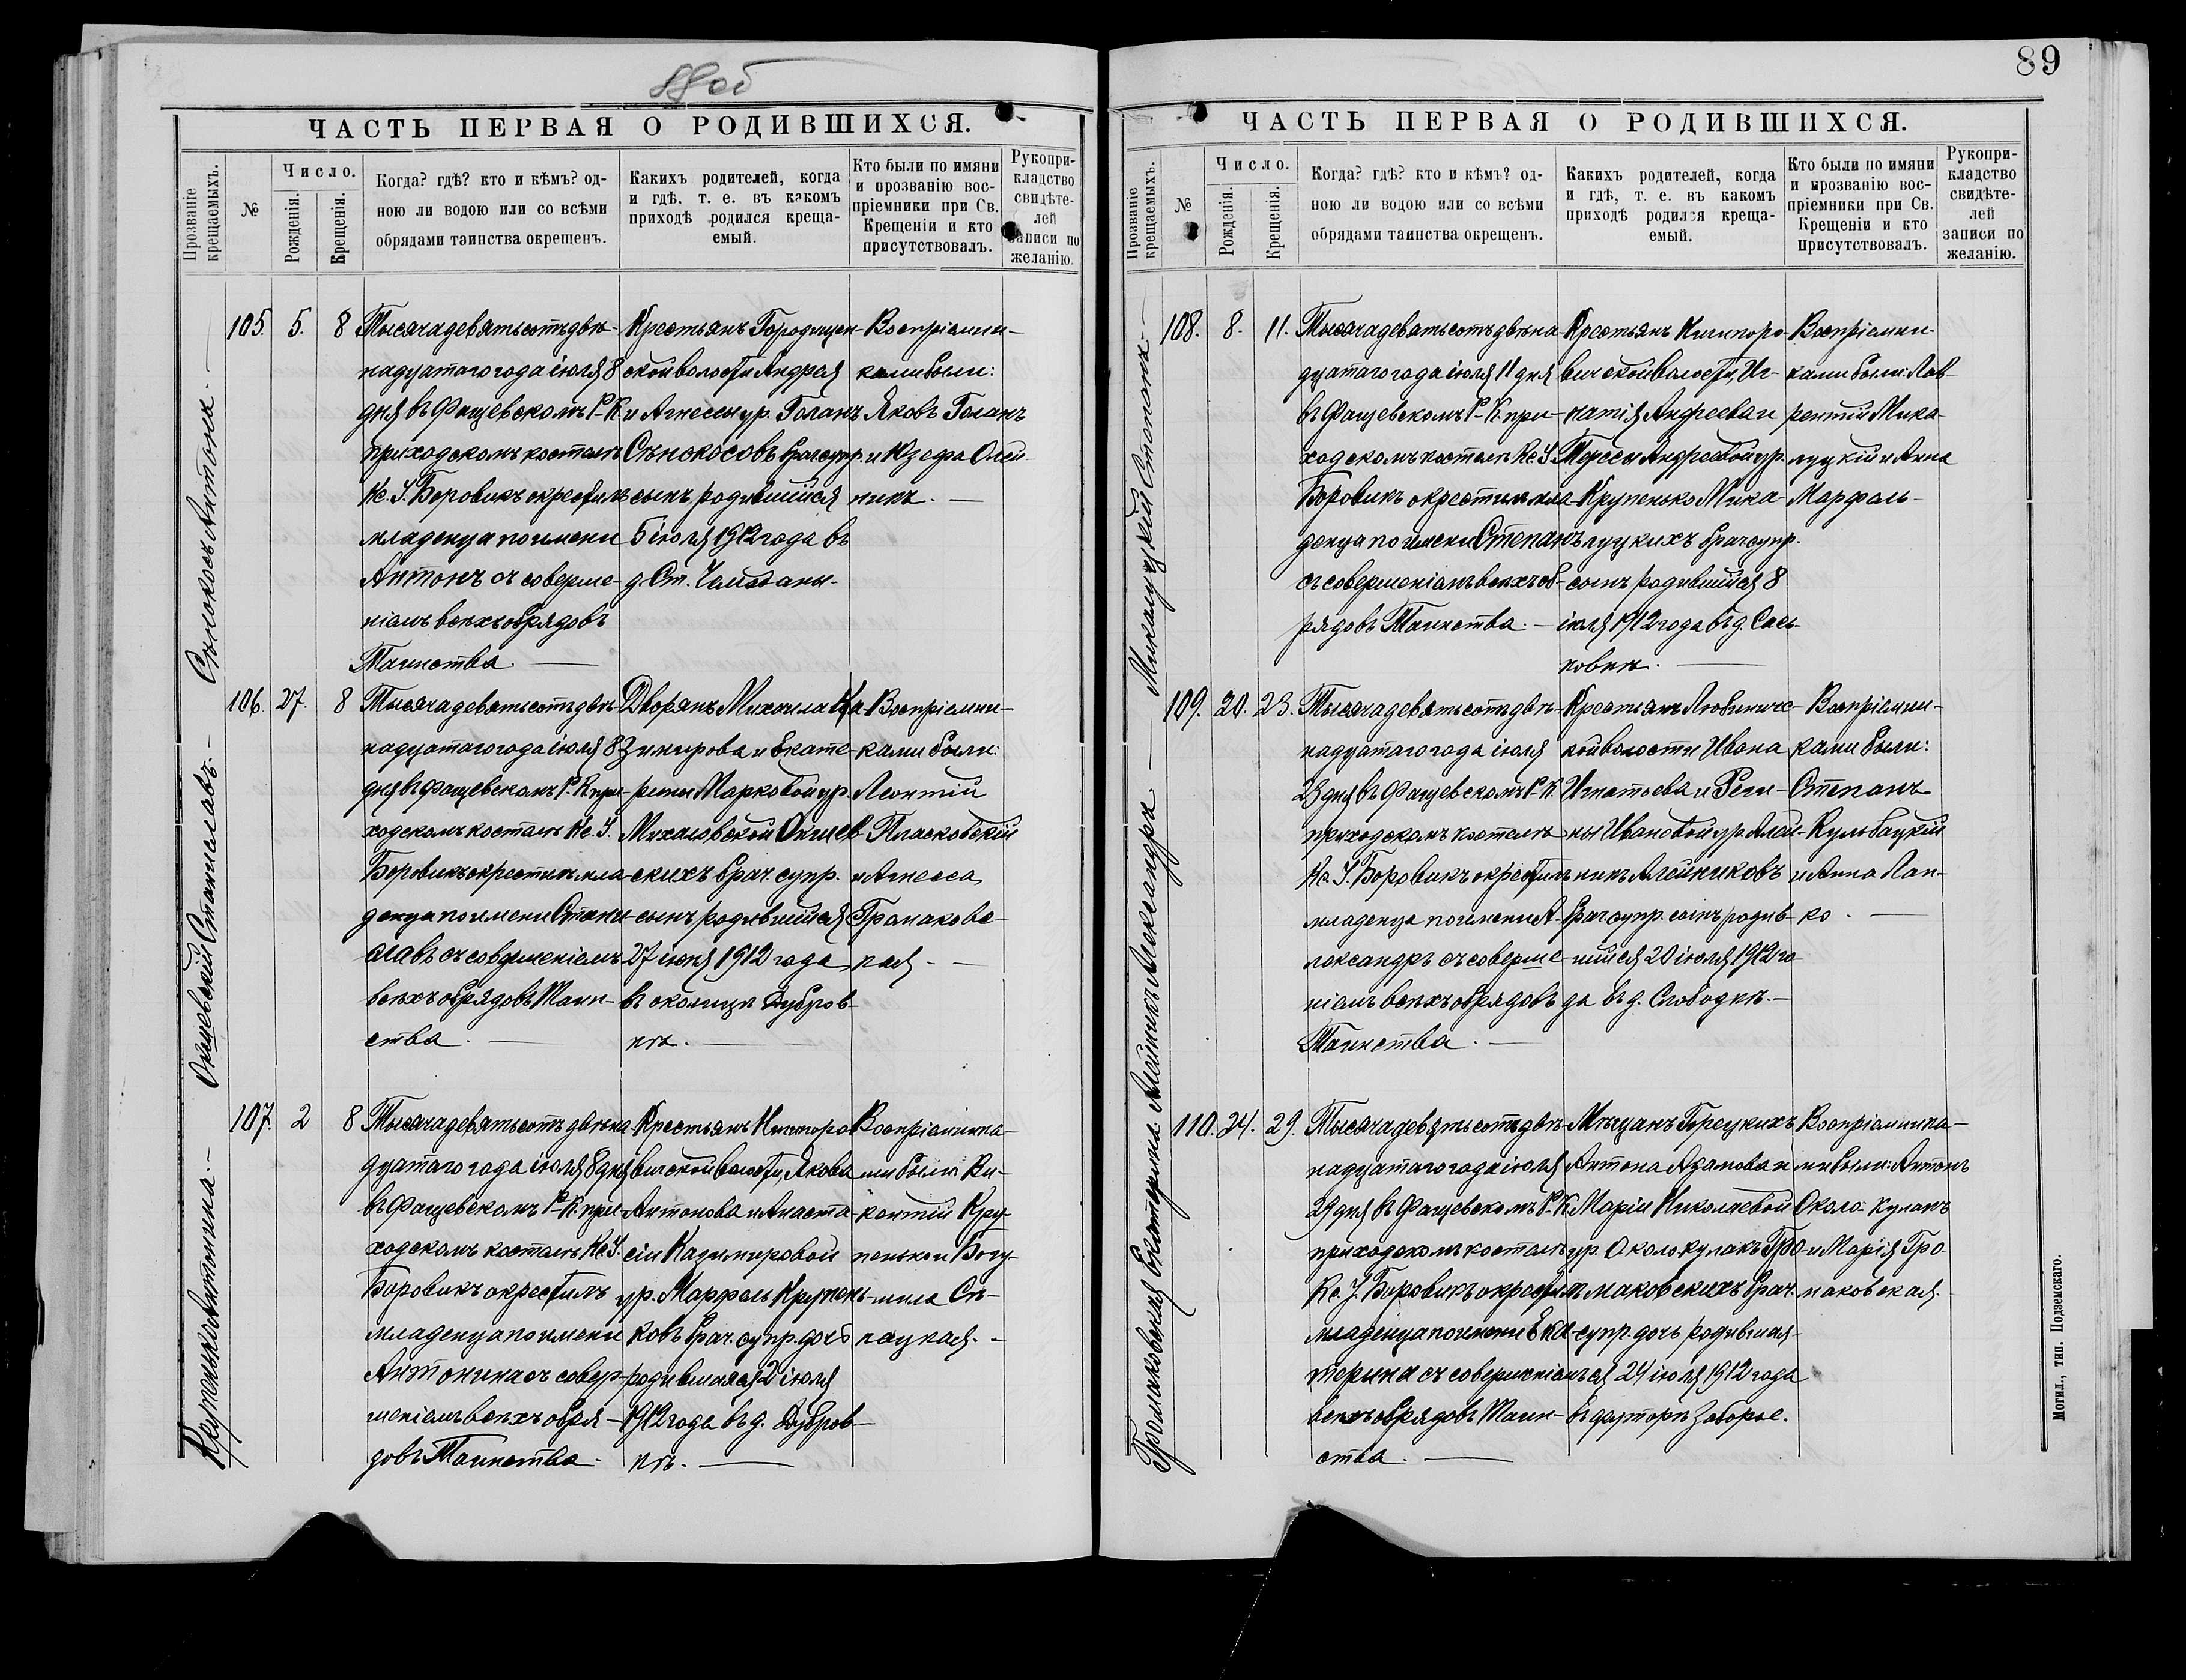 88 об
ЧАСТЬ ПЕРВАЯ О РОДИВШИХСЯ.
Прозваніе крещаемыхъ.
№
Число.
Рожденія.
Крещенія.
Когда? гдѣ? кто и кѣмъ? од-
ною ли водою или со всѣми
обрядами таинства окрещенъ.
Какихъ родителей, когда
и гдѣ, т. е. въ какомъ
приходѣ родился креща-
емый.
Кто были по имяни
и прозванію вос-
пріемники при Св.
Крещеніи и кто
присутствовалъ.
Рукопри-
кладство
свидѣте-
лей
записи по
желанію.
Сѣнокосъ Антонъ.
105. 5. 8
Тысяча девятьсотъ двѣ-
надцатаго года іюля 8
дня въ Фащевскомъ Р.-К.
приходскомъ костелѣ
Кс. У. Боровикъ окрестилъ
младенца по имени
Антонъ съ соверше-
ніемъ всѣхъ обрядовъ
Таинства.
Крестьянъ Городищен-
ской волости Андрея
и Агнессы ур. Голакъ
Сѣнокосовъ брач. супр.
сынъ родившійся
5 іюля 1912 года въ
д. Ст. Чемоданы.
Воспріемни-
ками были:
Яковъ Голакъ
и Юзефа Олей-
никъ.
Окщевскій Станиславъ.
106. 27. 8
Тысяча девятьсотъ двѣ-
надцатаго года іюля 8
дня въ Фащевскомъ Р.-К. при-
ходскомъ костелѣ Кс. У.
Боровикъ окрестилъ мла-
денца по имени Стани-
славъ съ совершеніемъ
всѣхъ обрядовъ Таин-
ства.
Дворянъ Михаила Ка-
зимирова и Екате-
рины Марковой ур.
Михаловской Окщев-
скихъ брач. супр.
сынъ родившійся
27 іюня 1912 года
въ околицѣ Дубров-
кѣ.
Воспріемни-
ками были:
Леонтій
Пласковскій
и Агнесса
Громаковс-
кая.
Крупенько Антонина.
107. 2 8
Тысяча девятьсотъ двѣна-
дцатаго года іюля 8 дня
въ Фащевскомъ Р.-К. при-
ходскомъ костелѣ Кс. У.
Боровикъ окрестилъ
младенца по имени
Антонина съ совер-
шеніемъ всѣхъ обря-
довъ Таинства.
Крестьянъ Ничипоро-
вичской волости, Якова
Антонова и Анаста-
сіи Казимировой
ур. Марфель Крупень-
ковъ брач. супр. дочь
родившаяся 2 іюля
1912 года въ д. Дубров-
кѣ.
Воспріемника-
ми были: Ви-
кентій Кру-
пенько и Богу-
мила Сѣ-
пацкая.
89
ЧАСТЬ ПЕРВАЯ О РОДИВШИХСЯ.
Прозваніе крещаемыхъ.
№
Число.
Рожденія.
Крещенія.
Когда? гдѣ? кто и кѣмъ? од-
ною ли водою или со всѣми
обрядами таинства окрещенъ.
Какихъ родителей, когда
и гдѣ, т. е. въ какомъ
приходѣ родился креща-
емый.
Кто были по имяни
и прозванію вос-
пріемники при Св.
Крещеніи и кто
присутствовалъ.
Рукопри-
кладство
свидѣте-
лей
записи по
желанію.
Микалуцкій Степанъ.
108. 8. 11.
Тысяча девятьсотъ двѣна-
дцатаго года іюля 11 дня
въ Фащевскомъ Р.-К. при-
ходскомъ костелѣ Кс. У.
Боровикъ окрестилъ мла-
денца по имени Степанъ
съ совершеніемъ всѣхъ об-
рядовъ Таинства.
Крестьянъ Ничипоро-
вичской волости, Иг-
натія Андреева и
Терессы Андреевой ур.
Крупенько Мика-
луцкихъ брач. супр.
сынъ родившійся 8
іюля 1912 года въ д. Сась-
ковкѣ.
Воспріемни-
ками были: Лав-
рентій Мика-
луцкій и Анна
Марфель.
Алейникъ Александръ
109. 20. 23.
Тысяча девятьсотъ двѣ-
надцатаго года іюля
23 дня въ Фащевскомъ Р.-К.
приходскомъ костелѣ
Кс. У. Боровикъ окрестилъ
младенца по имени А-
лександръ съ соверше-
ніемъ всѣхъ обрядовъ
Таинства.
Крестьянъ Любинич-
кой волости Ивана
Игнатьева и Реги-
ны Ивановой ур. Алей-
никъ Алейниковъ
брач. супр. сынъ родив-
шійся 20 іюля 1912 го
да въ д. Слободкѣ.
Воспріемни-
ками были:
Степанъ
Кульбацкій
и Анна Лап-
ко.
Громаковская Екатерина
110. 24. 29.
Тысяча девятьсотъ двѣ-
надцатаго года іюля
29 дня въ Фащевскомъ Р.-К.
приходскомъ костелѣ
Кс. У. Боровикъ окрестилъ
младенца по имени Ека-
терина съ совершеніемъ
всѣхъ обрядовъ Таин-
ства.
Мѣщанъ Горецкихъ
Антона Адамова и
Маріи Николаевой
ур. Околокулакъ Гро-
маковскихъ брач.
супр. дочь родившая-
ся 24 іюля 1912 года
въ фарторѣ Заборье.
Воспріемника-
ми были: Антонъ
Около-Кулакъ
и Марія Гро-
маковская.
Могил., тип. Подземскаго.